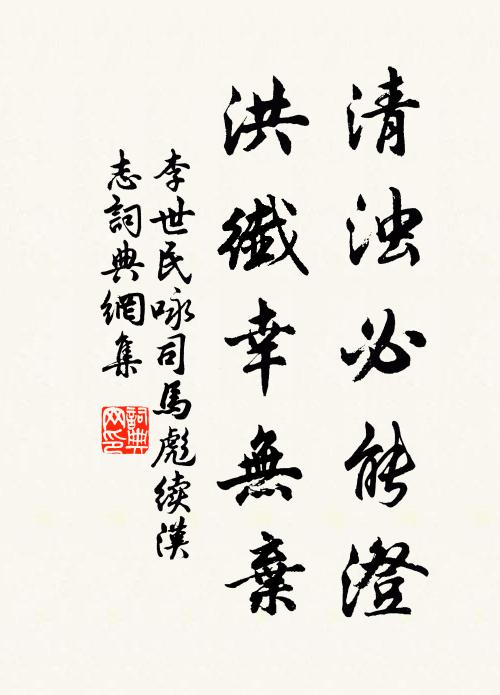 清浊必能澄
洪纖幸無棄
李世民咏司馬彪续漢
志詞典網集
詞典网印